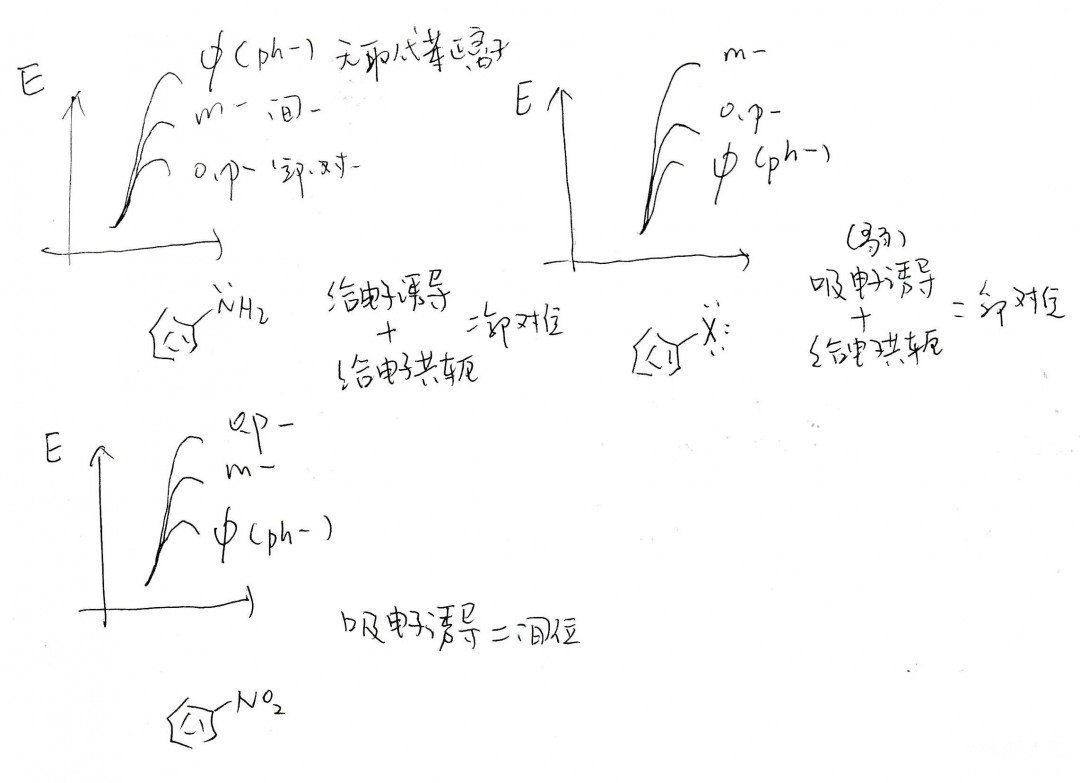 E
φ(ph-) 无取代苯正离子
m- 间-
o.p- 邻.对-
N̈H₂
给电子诱导
+
给电子共轭
=邻对位
E
m-
o.p-
φ(ph-)
X
(弱)
吸电子诱导
+
给电子共轭
=邻对位
E
o.p-
m-
φ(ph-)
吸电子诱导=间位
NO₂